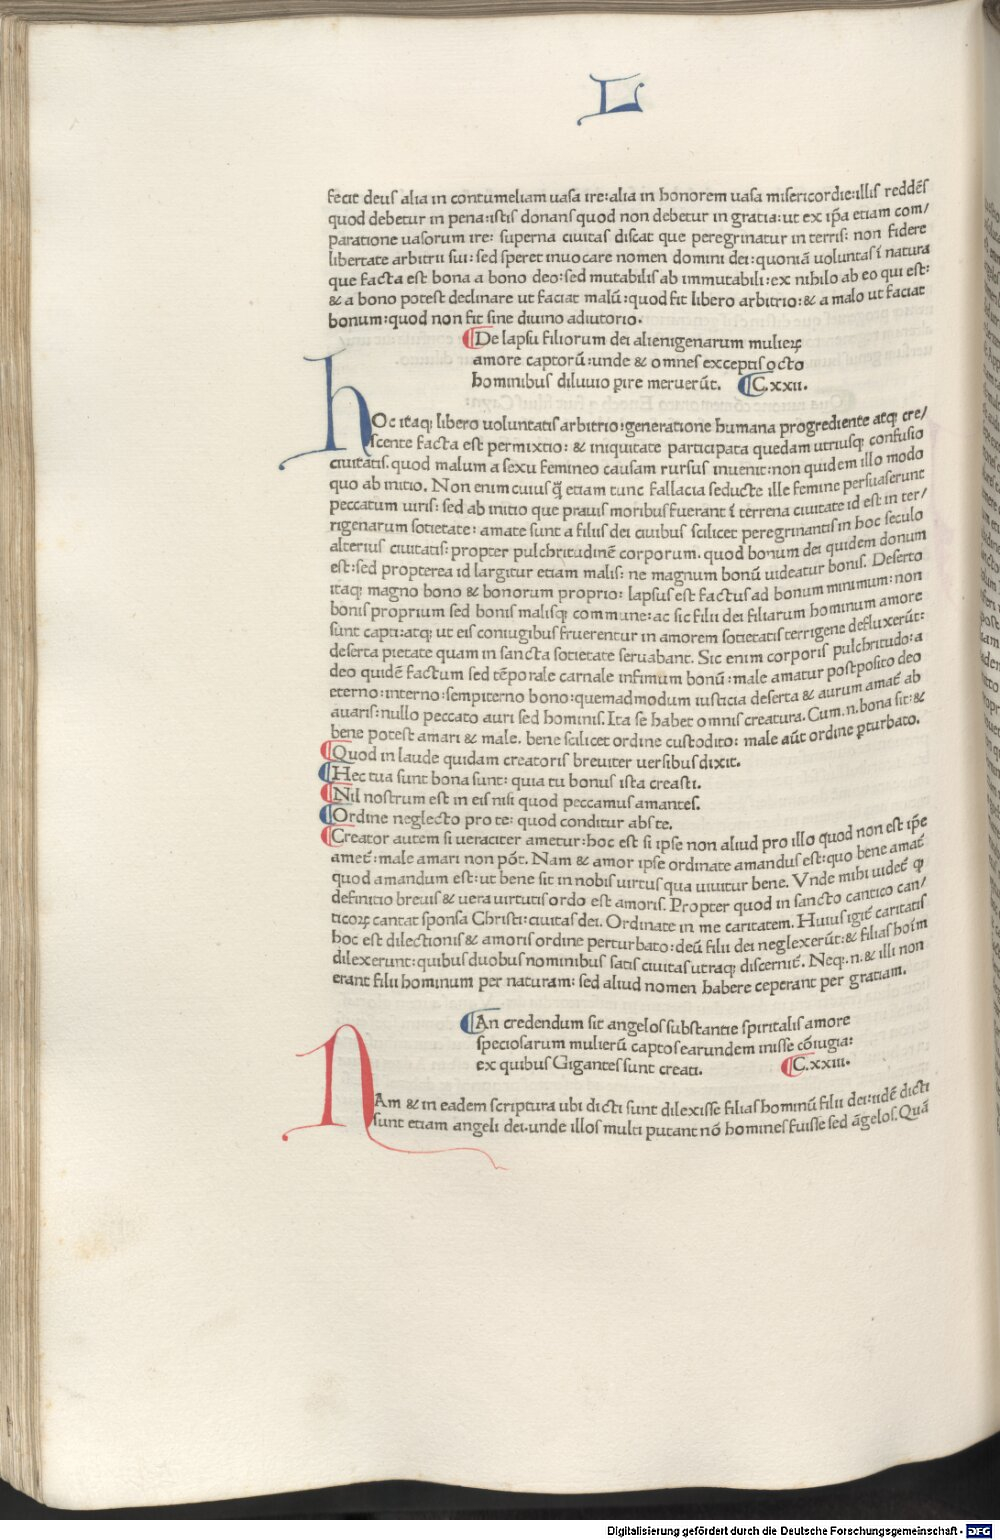 L
fecit deus alia in contumeliam uasa ire: alia in honorem uasa misericordie: illis reddēs
quod debetur in pena: istis donans quod non debetur in gratia: ut ex ip̄a etiam com/
paratione uasorum ire: superna ciuitas discat que peregrinatur in terris: non fidere
libertate arbitrii sui: sed speret inuocare nomen domini dei: quoniā uoluntas ī natura
que facta est bona a bono deo: sed mutabilis ab immutabili: ex nihilo ab eo qui est:
& a bono potest declinare ut faciat malū: quod fit libero arbitrio: & a malo ut faciat
bonum: quod non fit sine diuino adiutorio.
¶De lapsu filiorum dei alienigenarum mulieꝝ
amore captorū: unde & omnes exceptis octo
hominibus diluuio ꝑire meruerūt. ¶C.xxii.
hOc itaq; libero uoluntatis arbitrio: generatione humana progrediente atq; cre/
scente facta est permixtio: & iniquitate participata quedam utriusq; confusio
ciuitatis. quod malum a sexu femineo causam rursus inuenit: non quidem illo modo
quo ab initio. Non enim cuiusq̄ etiam tunc fallacia seducte ille femine persuaserunt
peccatum uiris: sed ab initio que prauis moribus fuerant ī terrena ciuitate id est in ter/
rigenarum societate: amate sunt a filiis dei ciuibus scilicet peregrinantis in hoc seculo
alterius ciuitatis: propter pulchritudinē corporum. quod bonum dei quidem donum
est: sed propterea id largitur etiam malis: ne magnum bonū uideatur bonis. Deserto
itaq; magno bono & bonorum proprio: lapsus est factus ad bonum minimum: non
bonis proprium sed bonis malisq; commune: ac sic filii dei filiarum hominum amore
sunt capti: atq; ut eis coniugibus fruerentur in amorem societatis terrigene defluxerūt:
deserta pietate quam in sancta societate seruabant. Sic enim corporis pulchritudo: a
deo quidē factum sed tēporale carnale infimum bonū: male amatur postposito deo
eterno: interno: sempiterno bono: quemadmodum iusticia deserta & aurum amat̄ ab
auaris: nullo peccato auri sed hominis. Ita se habet omnis creatura. Cum .n. bona sit: &
bene potest amari & male. bene scilicet ordine custodito: male aūt ordine ꝑturbato.
¶Quod in laude quidam creatoris breuiter uersibus dixit.
¶Hec tua sunt bona sunt: quia tu bonus ista creasti.
¶Nil nostrum est in eis nisi quod peccamus amantes.
¶Ordine neglecto pro te: quod conditur abs te.
¶Creator autem si ueraciter ametur: hoc est si ipse non aliud pro illo quod non est ip̄e
amet̄: male amari non pōt. Nam & amor ipse ordinate amandus est: quo bene amat̄
quod amandum est: ut bene sit in nobis uirtus qua uiuitur bene. Vnde mihi uidet̄ ꝙ
definitio breuis & uera uirtutis ordo est amoris. Propter quod in sancto cantico can/
ticoꝝ cantat sponsa Christi: ciuitas dei. Ordinate in me caritatem. Huius igit̄ caritatis
hoc est dilectionis & amoris ordine perturbato: deū filii dei neglexerūt: & filias hoīm
dilexerunt: quibus duobus nominibus satis ciuitas utraq; discernit̄. Neq; .n. & illi non
erant filii hominum per naturam: sed aliud nomen habere ceperant per gratiam.
¶An credendum sit angelos substantie spiritalis amore
speciosarum mulierū captos earundem inisse cōiugia:
ex quibus Gigantes sunt creati. ¶C.xxiii.
NAm & in eadem scriptura ubi dicti sunt dilexisse filias hominū filii dei: iidē dicti
sunt etiam angeli dei. unde illos multi putant nō homines fuisse sed āgelos. Quā
Digitalisierung gefördert durch die Deutsche Forschungsgemeinschaft - DFG